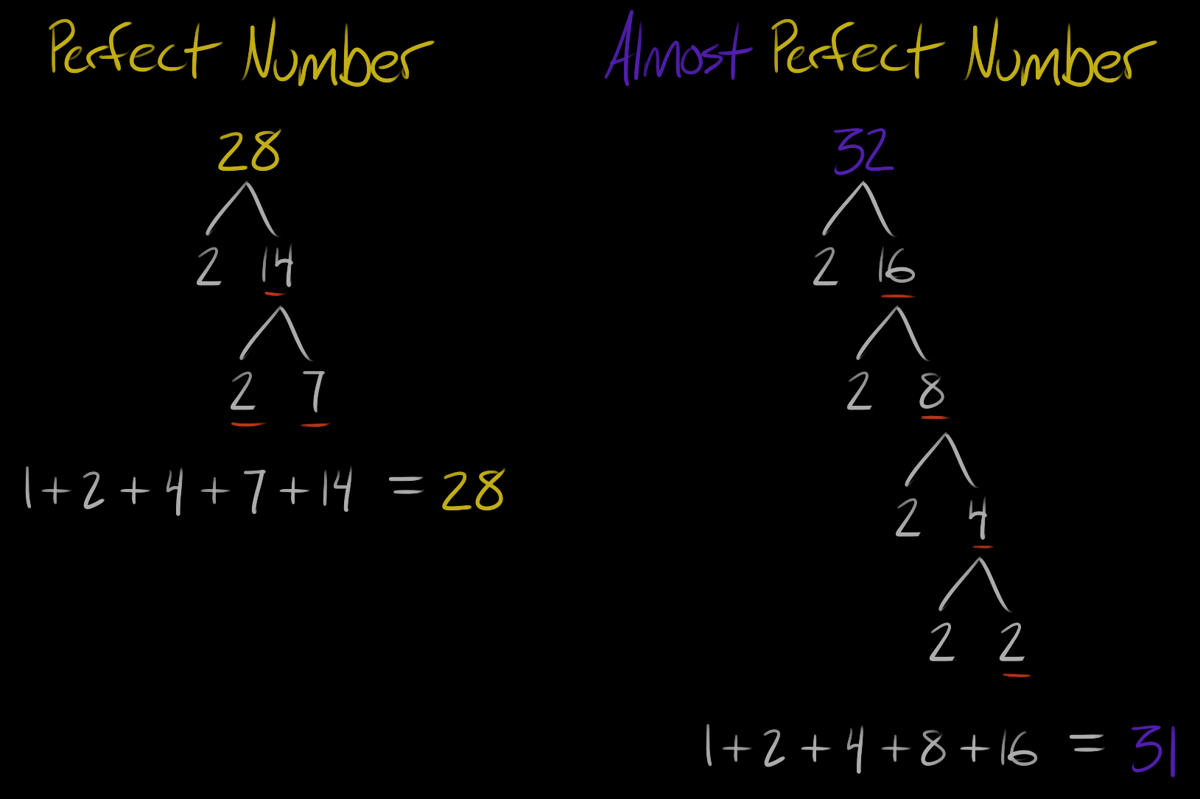 Perfect Number
28
2 14
2 7
1+2+4+7+14 = 28
Almost Perfect Number
32
2 16
2 8
2 4
2 2
1+2+4+8+16 = 31